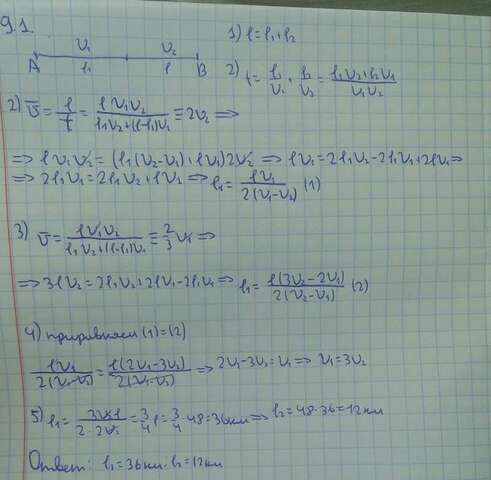 9.1.
V₁ V₂
A l₁ l B
1) l = l₁ + l₂
2) t = l₁/V₁ + l₂/V₂ = (l₁V₂ + l₂V₁)/(V₁V₂)
2) V̄ = l/t = lV₁V₂/(l₁V₂ + (l-l₁)V₁) ≡ 2V₂ ⇒
⇒ lV₁V₂ = (l₁(V₂-V₁) + lV₁)2V₂ ⇒ lV₁ = 2l₁V₂ - 2l₁V₁ + 2lV₁ ⇒
⇒ 2l₁V₁ = 2l₁V₂ + lV₁ ⇒ l₁ = lV₁/(2(V₁-V₂)) (1)
3) V̄ = lV₁V₂/(l₁V₂ + (l-l₁)V₁) ≡ 2/3 V₁ ⇒
⇒ 3lV₂ = 2l₁V₂ + 2lV₁ - 2l₁V₁ ⇒ l₁ = l(3V₂ - 2V₁)/(2(V₂-V₁)) (2)
4) приравняем (1) = (2)
lV₁/(2(V₁-V₂)) = l(2V₁-3V₂)/(2(V₁-V₂)) ⇒ 2V₁-3V₂ = V₁ ⇒ V₁ = 3V₂
5) l₁ = 3V₂l/(2·2V₂) = 3/4 l = 3/4 · 48 = 36км ⇒ l₂ = 48-36 = 12км
Ответ: l₁ = 36км. l₂ = 12км